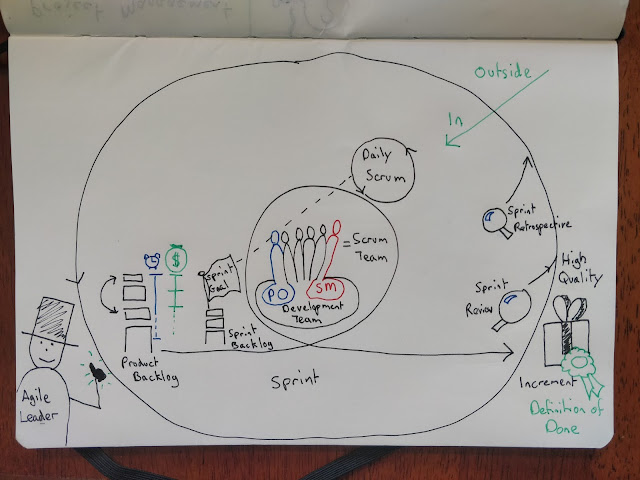 Project Management
Outside
In
Daily
Scrum
Sprint
Retrospective
= Scrum
Team
High
Quality
$
Sprint
Goal
PO
SM
Development
Team
Sprint
Review
Sprint
Backlog
Product
Backlog
Sprint
Increment
Agile
Leader
Definition of
Done